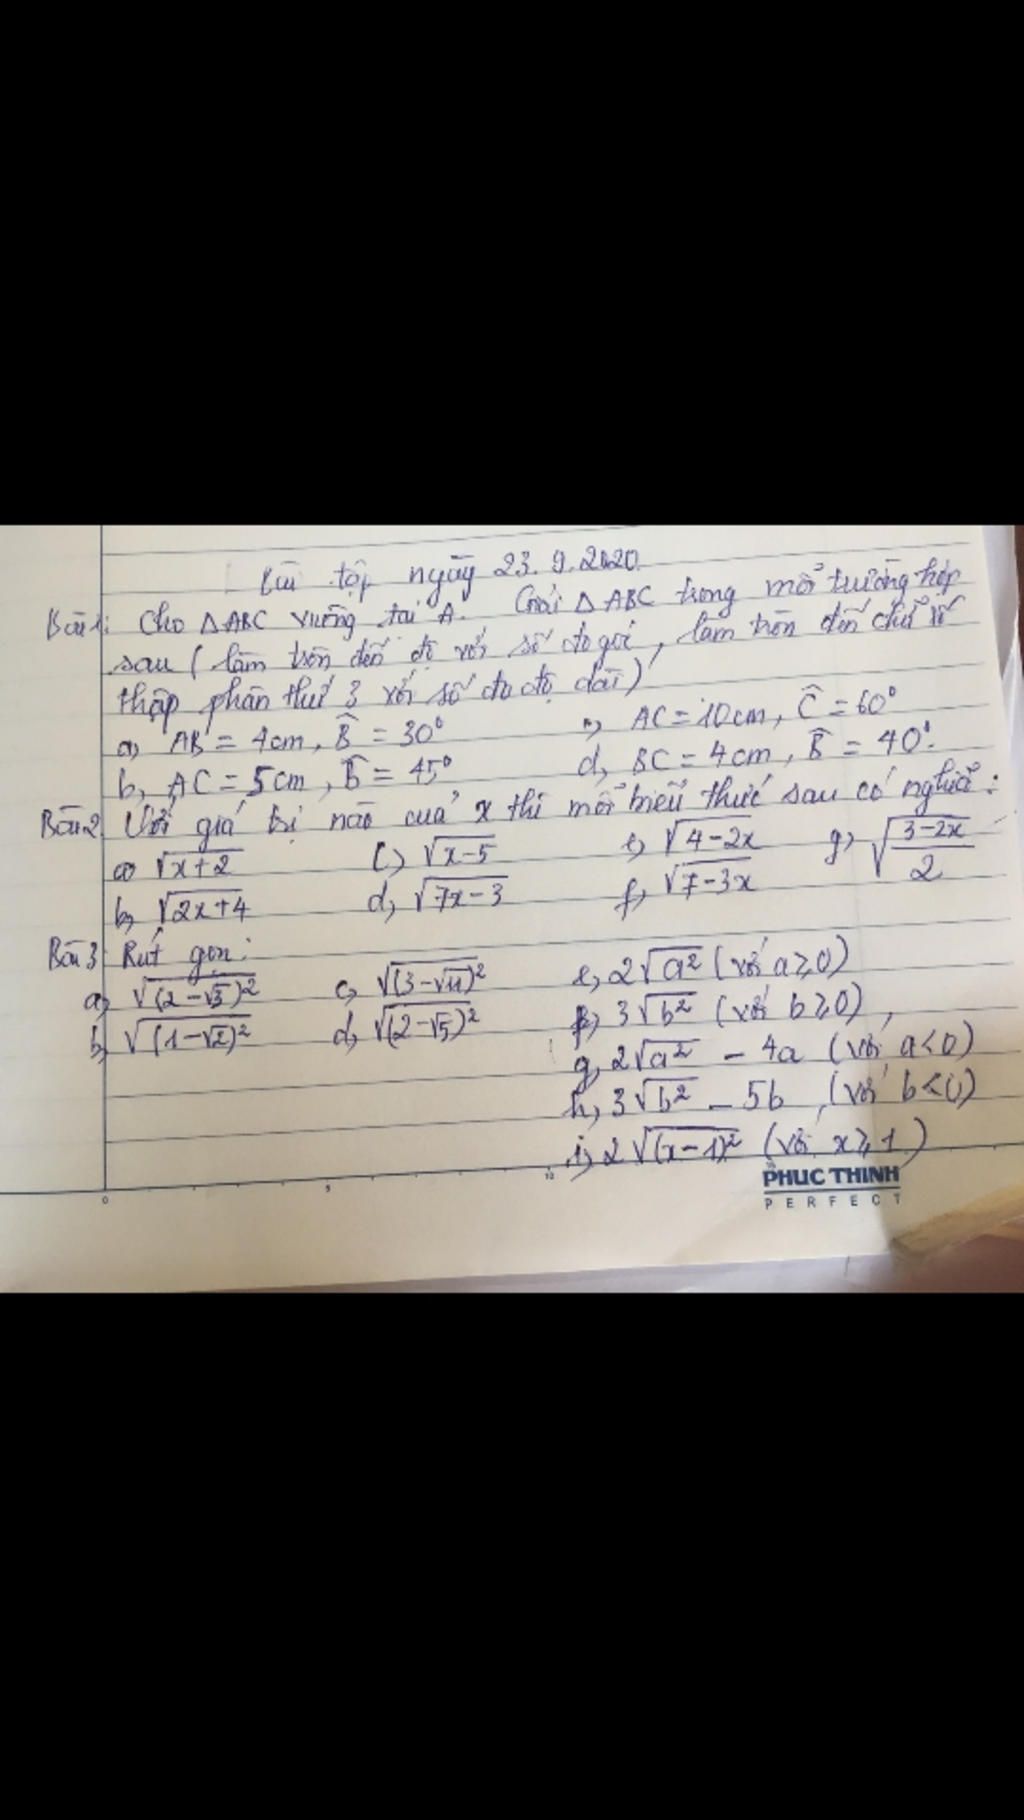 Bài tập ngày 23.9.2020
Bài 1: Cho △ABC vuông tại A. Giải △ABC trong mỗi trường hợp
sau (làm tròn đến độ với số đo góc, làm tròn đến chữ số
thập phân thứ 3 với số đo độ dài)
a, AB = 4cm, B̂ = 30° c, AC = 10cm, Ĉ = 60°
b, AC = 5cm, B̂ = 45° d, BC = 4cm, B̂ = 40°.
Bài 2 Với giá trị nào của x thì mỗi biểu thức sau có nghĩa:
a, √(x+2) c, √(x-5) e, √(4-2x) g, √((3-2x)/2)
b, √(2x+4) d, √(7x-3) f, √(7-3x)
Bài 3: Rút gọn:
a, √((2-√3)²) c, √((3-√11)²) e, 2√(a²) (với a≥0)
b, √((1-√2)²) d, √((2-√5)²) f, 3√(b²) (với b≥0),
g, 2√(a²) - 4a (với a<0)
h, 3√(b²) - 5b, (với b<0)
i, 2√((x-1)²) (với x≥1)
0 5 10
PHUC THINH
PERFECT